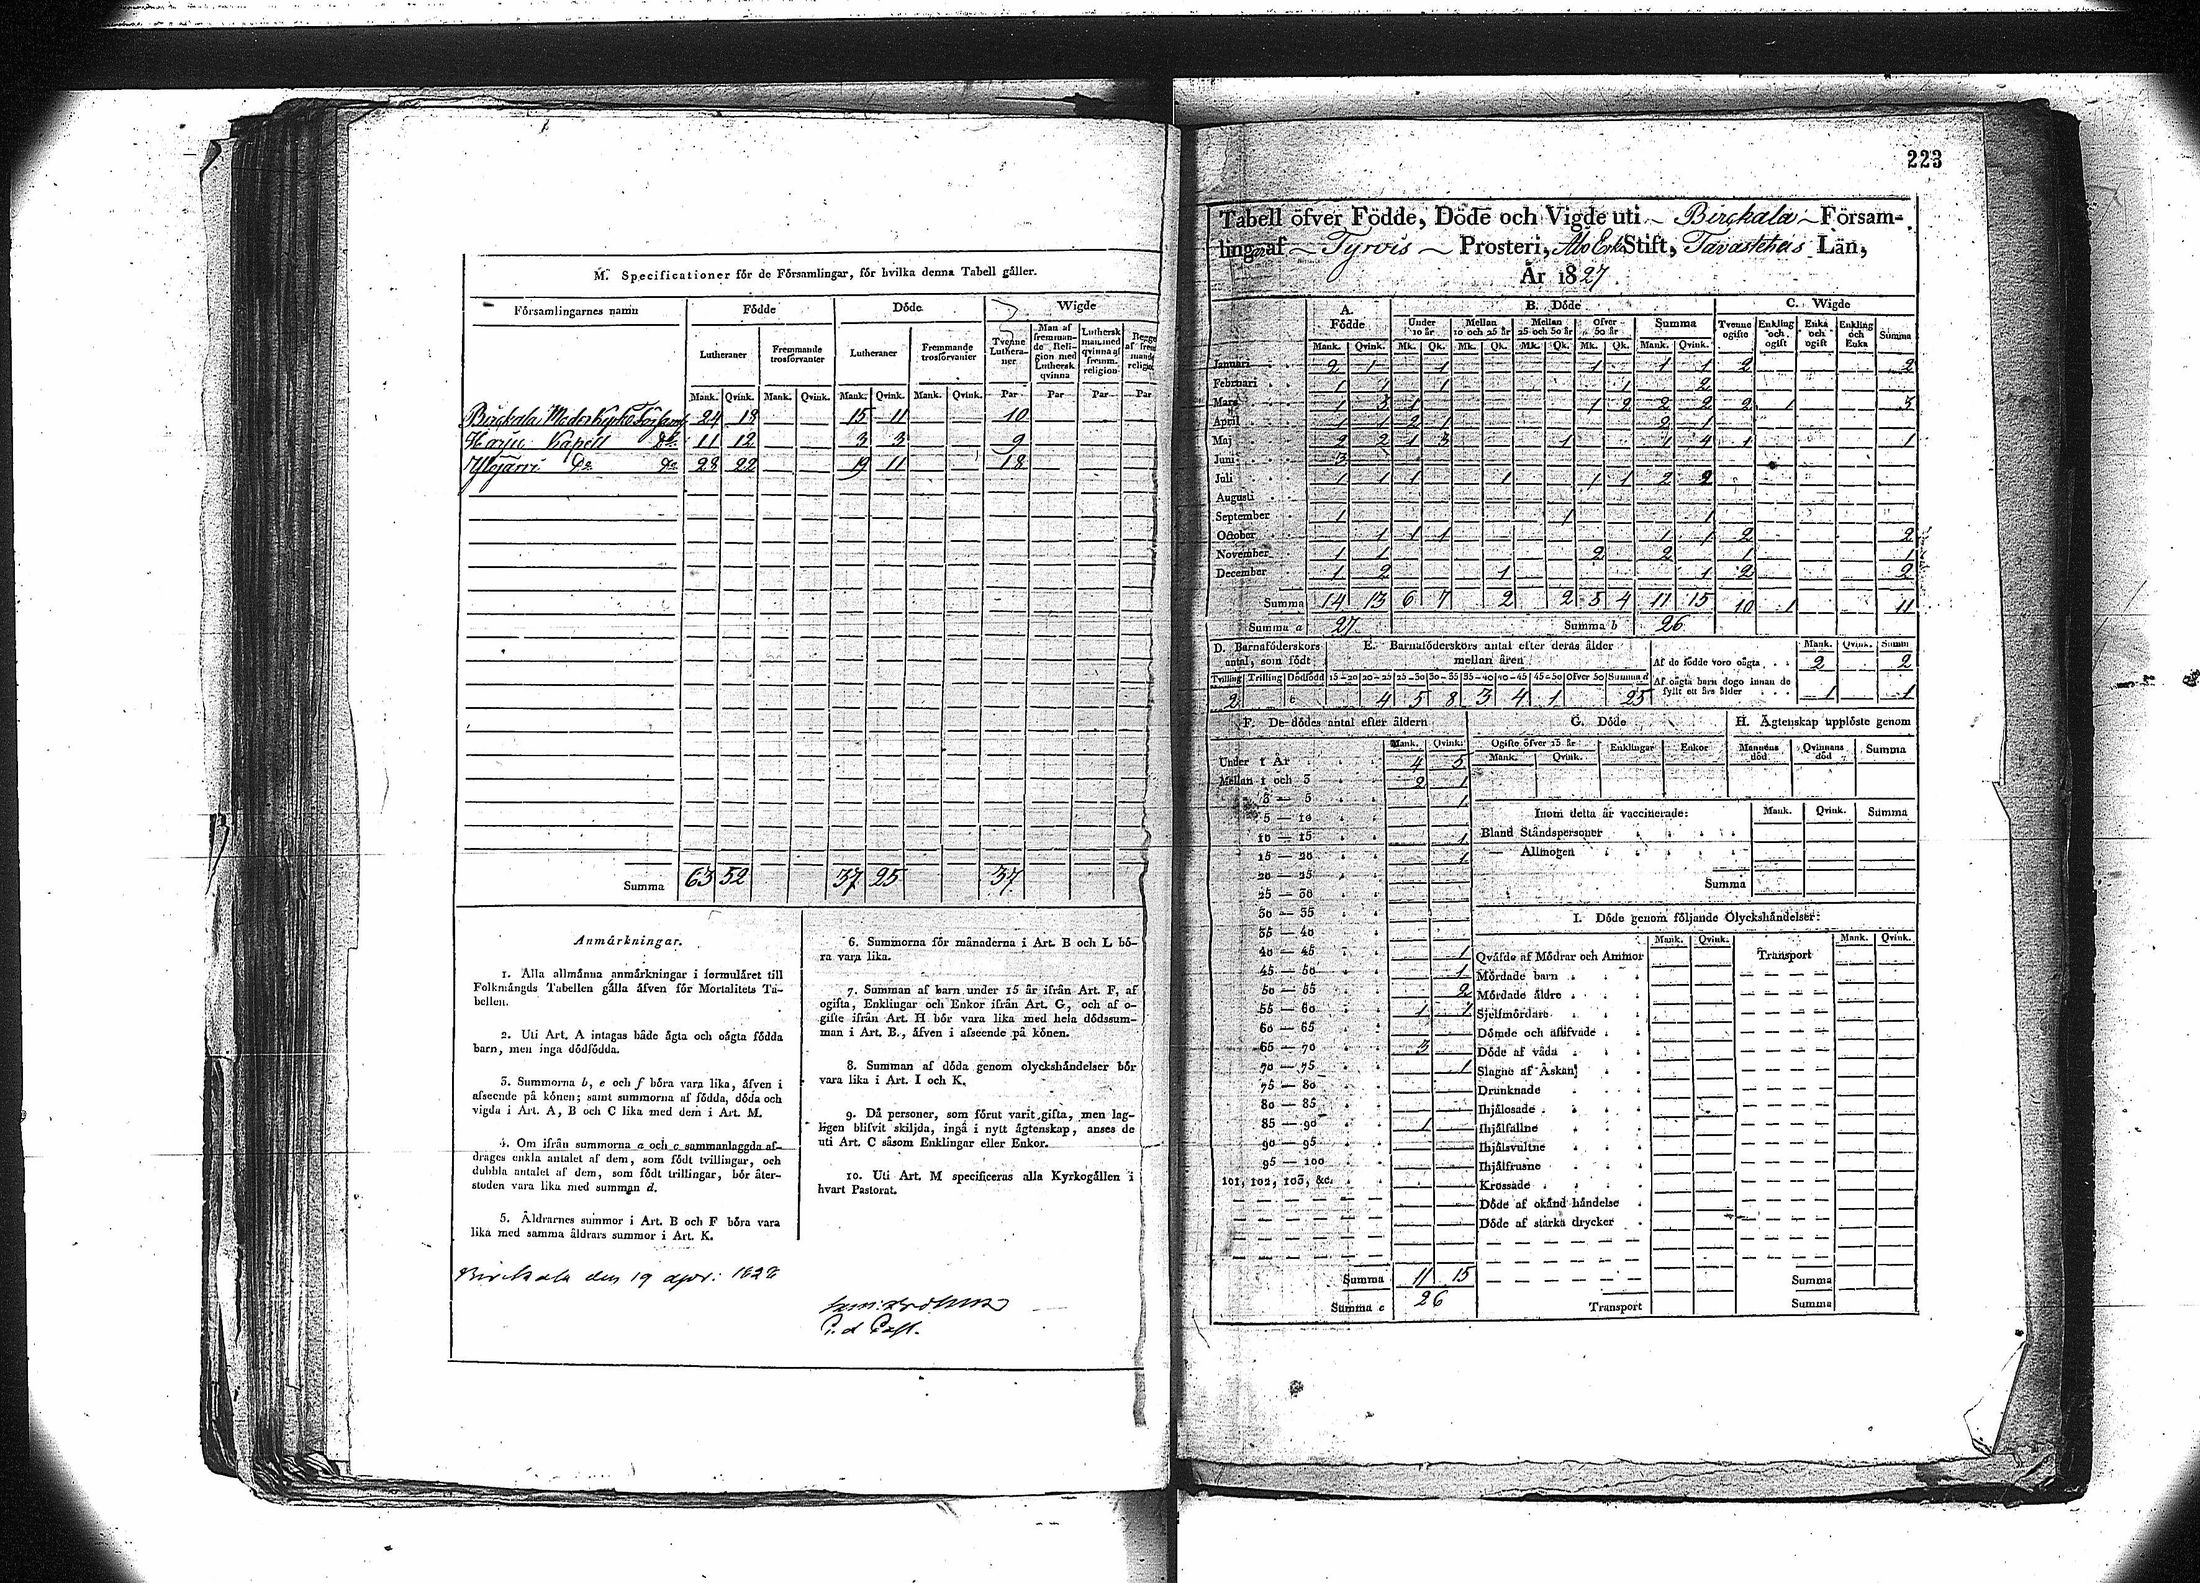 M. Specificationer för de Församlingar, för hvilka denna Tabell gäller.
Församlingarnes namn | Födde | Döde | Wigde
Lutheraner | Fremmande trosförvanter | Lutheraner | Fremmande trosförvanter | Tvenne Lutheraner | Man af fremmande Religion med Luthersk qvinna | Luthersk man med qvinna af fremm. religion
Mank. Qvink. Mank. Qvink. Mank. Qvink. Mank. Qvink. Par Par Par Par
Birckala Moderkyrko 24 18 15 11 10
Harju Kapell do 11 12 3 3 9
Ylöjärvi do do 28 22 19 11 18
Summa 63 52 37 25 37
Anmärkningar.
1. Alla allmänna anmärkningar i formuläret till
Folkmängds Tabellen gälla äfven för Mortalitets Ta-
bellen.
2. Uti Art. A intagas både ägta och oägta födda
barn, men inga dödfödda.
3. Summorna b, e och f böra vara lika, äfven i
afseende på könen; samt summorna af födda, döda och
vigda i Art. A, B och C lika med dem i Art. M.
4. Om ifrån summorna a och c sammanlagda af-
drages enkla antalet af dem, som födt tvillingar, och
dubbla antalet af dem, som födt trillingar, bör åter-
stoden vara lika med summan d.
5. Åldrarnes summor i Art. B och F böra vara
lika med samma åldrars summor i Art. K.
6. Summorna för månaderna i Art. B och L bö-
ra vara lika.
7. Summan af barn under 15 år ifrån Art. F, af
ogifta, Enklingar och Enkor ifrån Art. G, och af o-
gifte ifrån Art. H bör vara lika med hela dödssum-
man i Art. B., äfven i afseende på könen.
8. Summan af döda genom olyckshändelser bör
vara lika i Art. I och K.
9. Då personer, som förut varit gifta, men lag-
ligen blifvit skiljda, ingå i nytt ägtenskap, anses de
uti Art. C såsom Enklingar eller Enkor.
10. Uti Art. M specificeras alla Kyrkogällen i
hvart Pastorat.
Birckala den 19 apr: 1828
223
Tabell öfver Födde, Döde och Vigde uti Birckala Försam-
ling af Tyrvis Prosteri, Åbo Erke Stift, Tavastehus Län,
År 1827
A. Födde | B. Döde | C. Wigde
Under 10 år | Mellan 10 och 25 år | Mellan 25 och 50 år | Öfver 50 år | Summa | Tvenne ogifte | Enkling och ogift | Enka och ogift | Enkling och Enka | Summa
Mank. Qvink. Mk. Qk. Mk. Qk. Mk. Qk. Mk. Qk. Mank. Qvink.
Januari 2 1 1 1 1 1 2 2
Februari 1 1 1 1 2
Mars 1 3 1 1 2 2 2 2 1 3
April 1 1 2 1 2 1
Maj 2 2 1 3 1 1 4 1 1
Juni 3
Juli 1 1 1 1 1 1 2 2
Augusti
September 1 1 1
October 1 1 1 1 1 2 2
November 1 1 2 2 1 1
December 1 2 1 1 2 2
Summa 14 13 6 7 2 2 5 4 11 15 10 1 11
Summa a 27 Summa b 26
D. Barnaföderskors antal, som födt
E. Barnaföderskors antal efter deras ålder mellan åren
Tvilling Trilling Dödfödd 15-20 20-25 25-30 30-35 35-40 40-45 45-50 Öfver 50 Summa d
2 c 4 5 8 3 4 1 25
Mank. Qvink. Summa
Af de födde voro oägta 2 2
Af oägta barn dogo innan de
fyllt ett års ålder 1 1
F. De dödes antal efter åldern
Mank. Qvink.
Under 1 År 4 5
Mellan 1 och 3 2 1
3 — 5 1
5 — 10
10 — 15 1
15 — 20 1
20 — 25
25 — 30
30 — 35
35 — 40
40 — 45 1
45 — 50 1
50 — 55 2
55 — 60 1 1
60 — 65
65 — 70 3
70 — 75 1
75 — 80
80 — 85
85 — 90 1
90 — 95
95 — 100
101, 102, 103, &c.
Summa 11 15
Summa e 26
G. Döde
Ogifte öfver 15 år | Enklingar | Enkor
Mank. Qvink.
H. Ägtenskap upplöste genom
Mannens död | Qvinnans död | Summa
Inom detta år vaccinerade: Mank. Qvink. Summa
Bland Ståndspersoner
— Allmogen
Summa
I. Döde genom följande Olyckshändelser:
Mank. Qvink. Mank. Qvink.
Qväfde af Mödrar och Ammor Transport
Mördade barn
Mördade äldre
Sjelfmördare
Dömde och aflifvade
Döde af våda
Slagne af Åskan
Drunknade
Ihjälosade
Ihjälfallne
Ihjälsvultne
Ihjälfrusne
Krossade
Döde af okänd händelse
Döde af starka drycker
Summa
Transport Summa